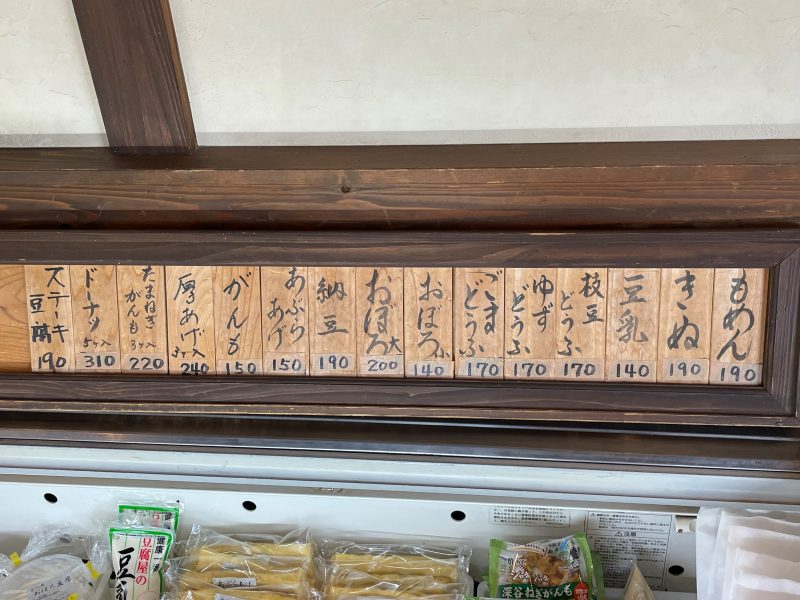 もめん
190
きぬ
190
豆乳
140
枝豆
どうふ
170
ゆず
どうふ
170
ごま
どうふ
170
おぼろ小
140
おぼろ大
200
納豆
190
あぶら
あげ
150
がんも
150
厚あげ
3ヶ入
240
たまねぎ
がんも
3ヶ入
220
ドーナツ
5ヶ入
310
ステーキ
豆腐
190
健康一番
豆腐屋の
豆乳
あぶらあげ
深谷ねぎがんも
注意